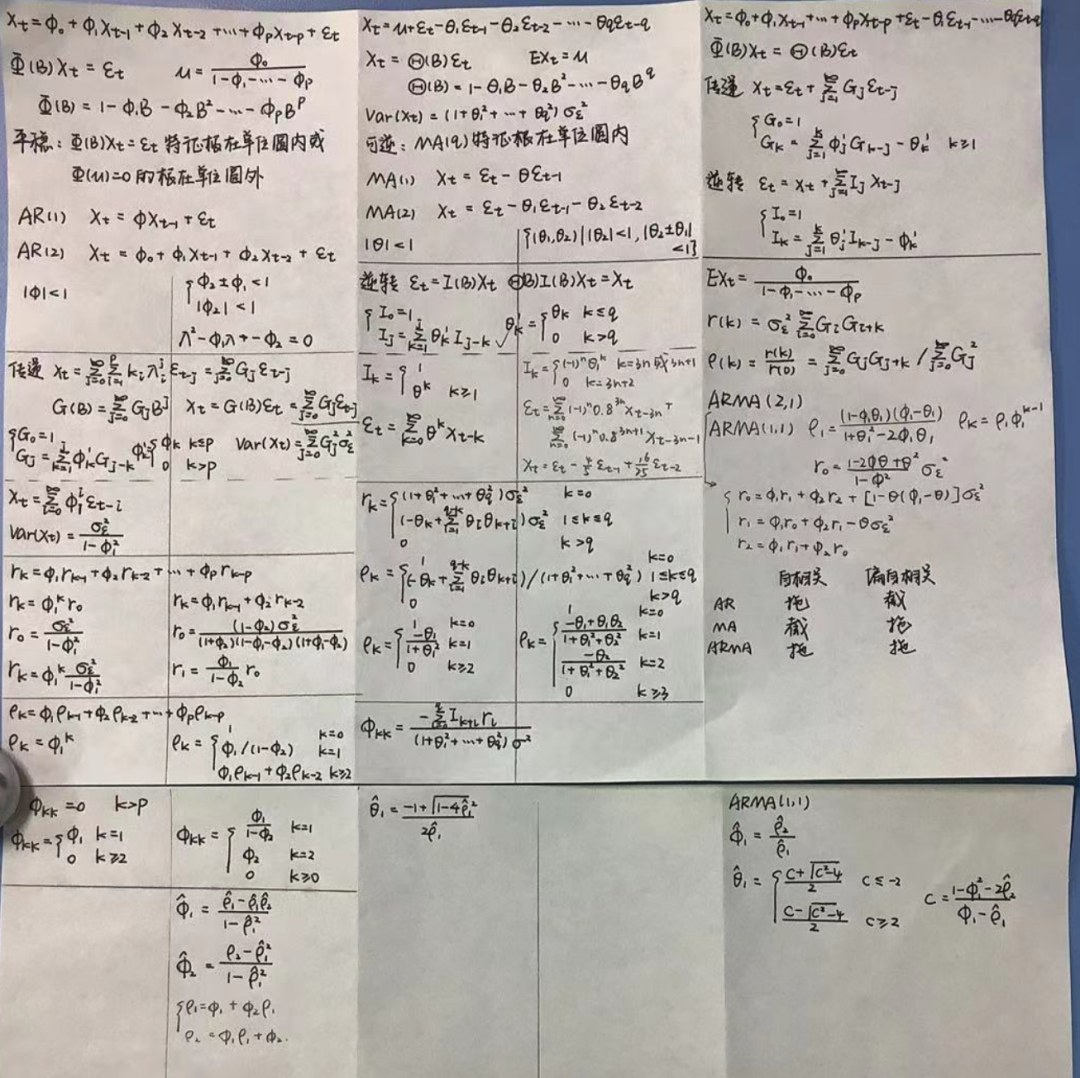 Xt = Φ₀ + Φ₁Xt-1 + Φ₂Xt-2 + ... + ΦpXt-p + εt
Φ(B)Xt = εt    μ = Φ₀/(1-Φ₁-...-Φp)
Φ(B) = 1 - Φ₁B - Φ₂B² - ... - ΦpB^p
平稳: Φ(B)Xt = εt 特征根在单位圆内或
Φ(u)=0 的根在单位圆外
AR(1)  Xt = ΦXt-1 + εt
AR(2)  Xt = Φ₀ + Φ₁Xt-1 + Φ₂Xt-2 + εt
|Φ|<1    { Φ₂±Φ₁<1
|Φ₂|<1
λ²-Φ₁λ-Φ₂=0
传递 Xt = Σ(j=0,∞) Σ(i=1,p) kᵢλᵢ^j εt-j = Σ(j=0,∞) Gjεt-j
G(B) = Σ(j=0,∞) GjB^j    Xt = G(B)εt = Σ(j=0,∞) Gjεt-j
{ G₀=1
Gj = Σ(k=1,j) Φ'kGj-k    Φ'k { Φk k≤p
0 k>p    Var(Xt) = Σ(j=0,∞) Gj²σε²
Xt = Σ(i=0,∞) Φ₁^i εt-i
Var(Xt) = σε²/(1-Φ₁²)
rk = Φ₁rk-1 + Φ₂rk-2 + ... + Φprk-p
rk = Φ₁^k r₀    rk = Φ₁rk-1 + Φ₂rk-2
r₀ = σε²/(1-Φ₁²)    r₀ = (1-Φ₂)σε²/((1+Φ₂)(1-Φ₁-Φ₂)(1+Φ₁-Φ₂))
rk = Φ₁^k σε²/(1-Φ₁²)    r₁ = Φ₁/(1-Φ₂) r₀
ρk = Φ₁ρk-1 + Φ₂ρk-2 + ... + Φpρk-p
ρk = Φ₁^k    ρk = { 1 k=0
Φ₁/(1-Φ₂) k=1
Φ₁ρk-1+Φ₂ρk-2 k≥2
Φkk=0  k>p
Φkk = { Φ₁ k=1
0 k≥2
Φkk = { Φ₁/(1-Φ₂) k=1
Φ₂ k=2
0 k≥0
Φ̂₁ = (ρ̂₁-ρ̂₁ρ̂₂)/(1-ρ̂₁²)
Φ̂₂ = (ρ̂₂-ρ̂₁²)/(1-ρ̂₁²)
{ ρ₁=Φ₁+Φ₂ρ₁
ρ₂=Φ₁ρ₁+Φ₂.
Xt = μ+εt-θ₁εt-1-θ₂εt-2-...-θqεt-q
Xt = Θ(B)εt    EXt = μ
Θ(B) = 1-θ₁B-θ₂B²-...-θqB^q
Var(Xt) = (1+θ₁²+...+θq²)σε²
可逆: MA(q)特征根在单位圆内
MA(1)  Xt = εt-θεt-1
MA(2)  Xt = εt-θ₁εt-1-θ₂εt-2
|θ|<1    {(θ₁,θ₂)| |θ₂|<1, |θ₂±θ₁|
<1}
逆转 εt=I(B)Xt  Θ(B)I(B)Xt=Xt
{ I₀=1
Ij = Σ(k=1,j) θ'k Ij-k    θ'k = { θk k≤q
0 k>q
Ik = { 1
θ^k k≥1
Ik = { (-1)^n θ₁^k k=3n或3n+1
0 k=3n+2
εt = Σ(k=0,∞) θ^k Xt-k
εt = Σ(n=0,∞)(-1)^n 0.8^3n Xt-3n +
Σ(n=0,∞)(-1)^n 0.8^3n+1 Xt-3n-1
Xt = εt - 4/5 εt-1 + 16/25 εt-2
rk = { (1+θ₁²+...+θq²)σε² k=0
(-θk+Σ(i=1,q-k) θiθk+i)σε² 1≤k≤q
0 k>q
ρk = { 1 k=0
(-θk+Σ(i=1,q-k) θiθk+i)/(1+θ₁²+...+θq²) 1≤k≤q
0 k>q
ρk = { 1 k=0
-θ₁/(1+θ₁²) k=1
0 k≥2
ρk = { 1 k=0
(-θ₁+θ₁θ₂)/(1+θ₁²+θ₂²) k=1
-θ₂/(1+θ₁²+θ₂²) k=2
0 k≥3
θ̂₁ = (-1+√(1-4ρ̂₁²))/(2ρ̂₁)
Xt=Φ₀+Φ₁Xt-1+...+ΦpXt-p+εt-θ₁εt-1-...-θqεt-q
Φ(B)Xt = Θ(B)εt
传递 Xt=εt+Σ(j=1,∞) Gjεt-j
{ G₀=1
Gk = Σ(j=1,k) Φ'jGk-j-θ'k  k≥1
逆转 εt = Xt+Σ(j=1,∞) IjXt-j
{ I₀=1
Ik = Σ(j=1,k) θ'jIk-j-Φ'k
EXt = Φ₀/(1-Φ₁-...-Φp)
r(k) = σε² Σ(i=0,∞) GiGi+k
ρ(k) = r(k)/r(0) = Σ(j=0,∞) GjGj+k / Σ(j=0,∞) Gj²
ARMA(2,1)
ARMA(1,1) ρ₁=(1-Φ₁θ₁)(Φ₁-θ₁)/(1+θ₁²-2Φ₁θ₁)  ρk=ρ₁Φ₁^k-1
r₀ = (1-2Φθ+θ²)/(1-Φ²) σε²
{ r₀=Φ₁r₁+Φ₂r₂+[1-θ(Φ₁-θ)]σε²
r₁=Φ₁r₀+Φ₂r₁-θσε²
r₂=Φ₁r₁+Φ₂r₀
自相关  偏自相关
AR  拖  截
MA  截  拖
ARMA  拖  拖
ARMA(1,1)
Φ̂₁ = ρ̂₂/ρ̂₁
θ̂₁ = { (c+√(c²-4))/2  c≤-2
(c-√(c²-4))/2  c≥2
c = (1-Φ₁²-2ρ̂₂)/(Φ₁-ρ̂₁)